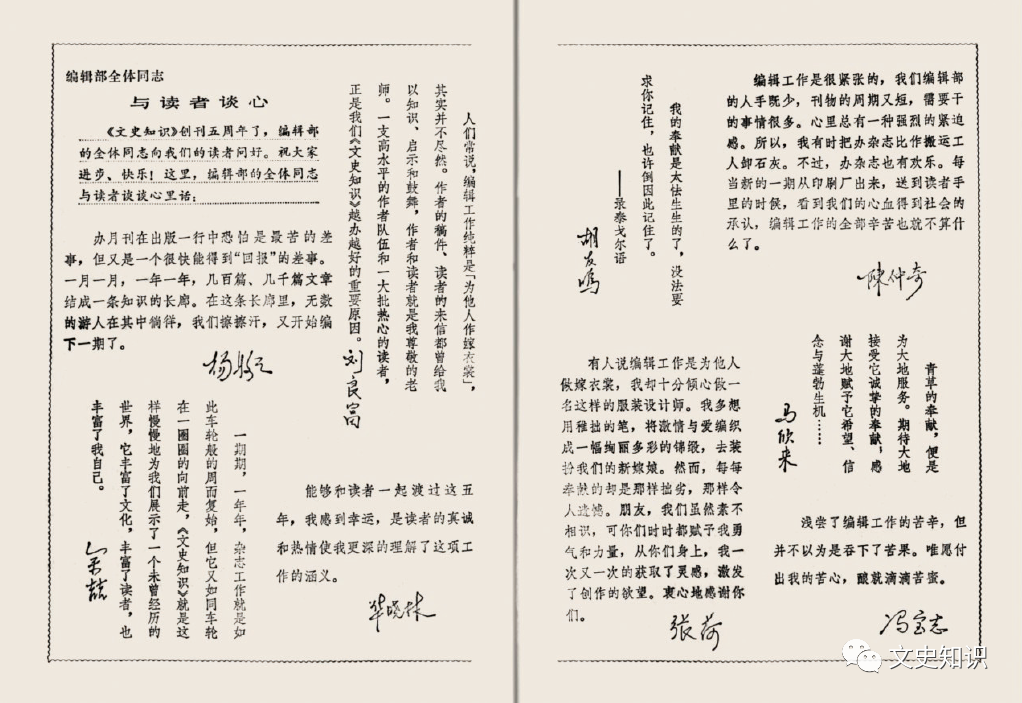 编辑部全体同志
与读者谈心
《文史知识》创刊五周年了，编辑部
的全体同志向我们的读者问好。祝大家
进步、快乐！这里，编辑部的全体同志
与读者谈谈心里话：
办月刊在出版一行中恐怕是最苦的差
事，但又是一个很快能得到“回报”的差事。
一月一月，一年一年，几百篇、几千篇文章
结成一条知识的长廊。在这条长廊里，无数
的游人在其中徜徉，我们擦擦汗，又开始编
下一期了。
人们常说，编辑工作纯粹是“为他人作嫁衣裳”，
其实并不尽然。作者的稿件、读者的来信都曾给我
以知识、启示和鼓舞，作者和读者就是我尊敬的老
师。一支高水平的作者队伍和一大批热心的读者，
正是我们《文史知识》越办越好的重要原因。
刘良富
一期期，一年年，杂志工作就是如
此车轮般的周而复始，但它又如同车轮
在一圈圈的向前走，《文史知识》就是这
样慢慢地为我们展示了一个未曾经历的
世界，它丰富了文化，丰富了读者，也
丰富了我自己。
余喆
能够和读者一起渡过这五
年，我感到幸运，是读者的真诚
和热情使我更深的理解了这项工
作的涵义。
华晓林
我的奉献是太怯生生的了，没法要
求你记住，也许倒因此记住了。
——录泰戈尔语
胡友鸣
编辑工作是很紧张的，我们编辑部
的人手既少，刊物的周期又短，需要干
的事情很多。心里总有一种强烈的紧迫
感。所以，我有时把办杂志比作搬运工
人卸石灰。不过，办杂志也有欢乐。每
当新的一期从印刷厂出来，送到读者手
里的时候，看到我们的心血得到社会的
承认，编辑工作的全部辛苦也就不算什
么了。
陳仲奇
有人说编辑工作是为他人
做嫁衣裳，我却十分倾心做一
名这样的服装设计师。我多想
用稚拙的笔，将激情与爱编织
成一幅绚丽多彩的锦缎，去装
扮我们的新嫁娘。然而，每每
奉献的却是那样拙劣，那样令
人遗憾。朋友，我们虽然素不
相识，可你们时时都赋予我勇
气和力量，从你们身上，我一
次又一次的获取了灵感，激发
了创作的欲望。衷心地感谢你
们。
张荷
青草的奉献，便是
为大地服务。期待大地
接受它诚挚的奉献，感
谢大地赋予它希望、信
念与蓬勃生机……
马欣来
浅尝了编辑工作的苦辛，但
并不以为是吞下了苦果。唯愿付
出我的苦心，酿就滴滴苦蜜。
冯宝志
文史知识